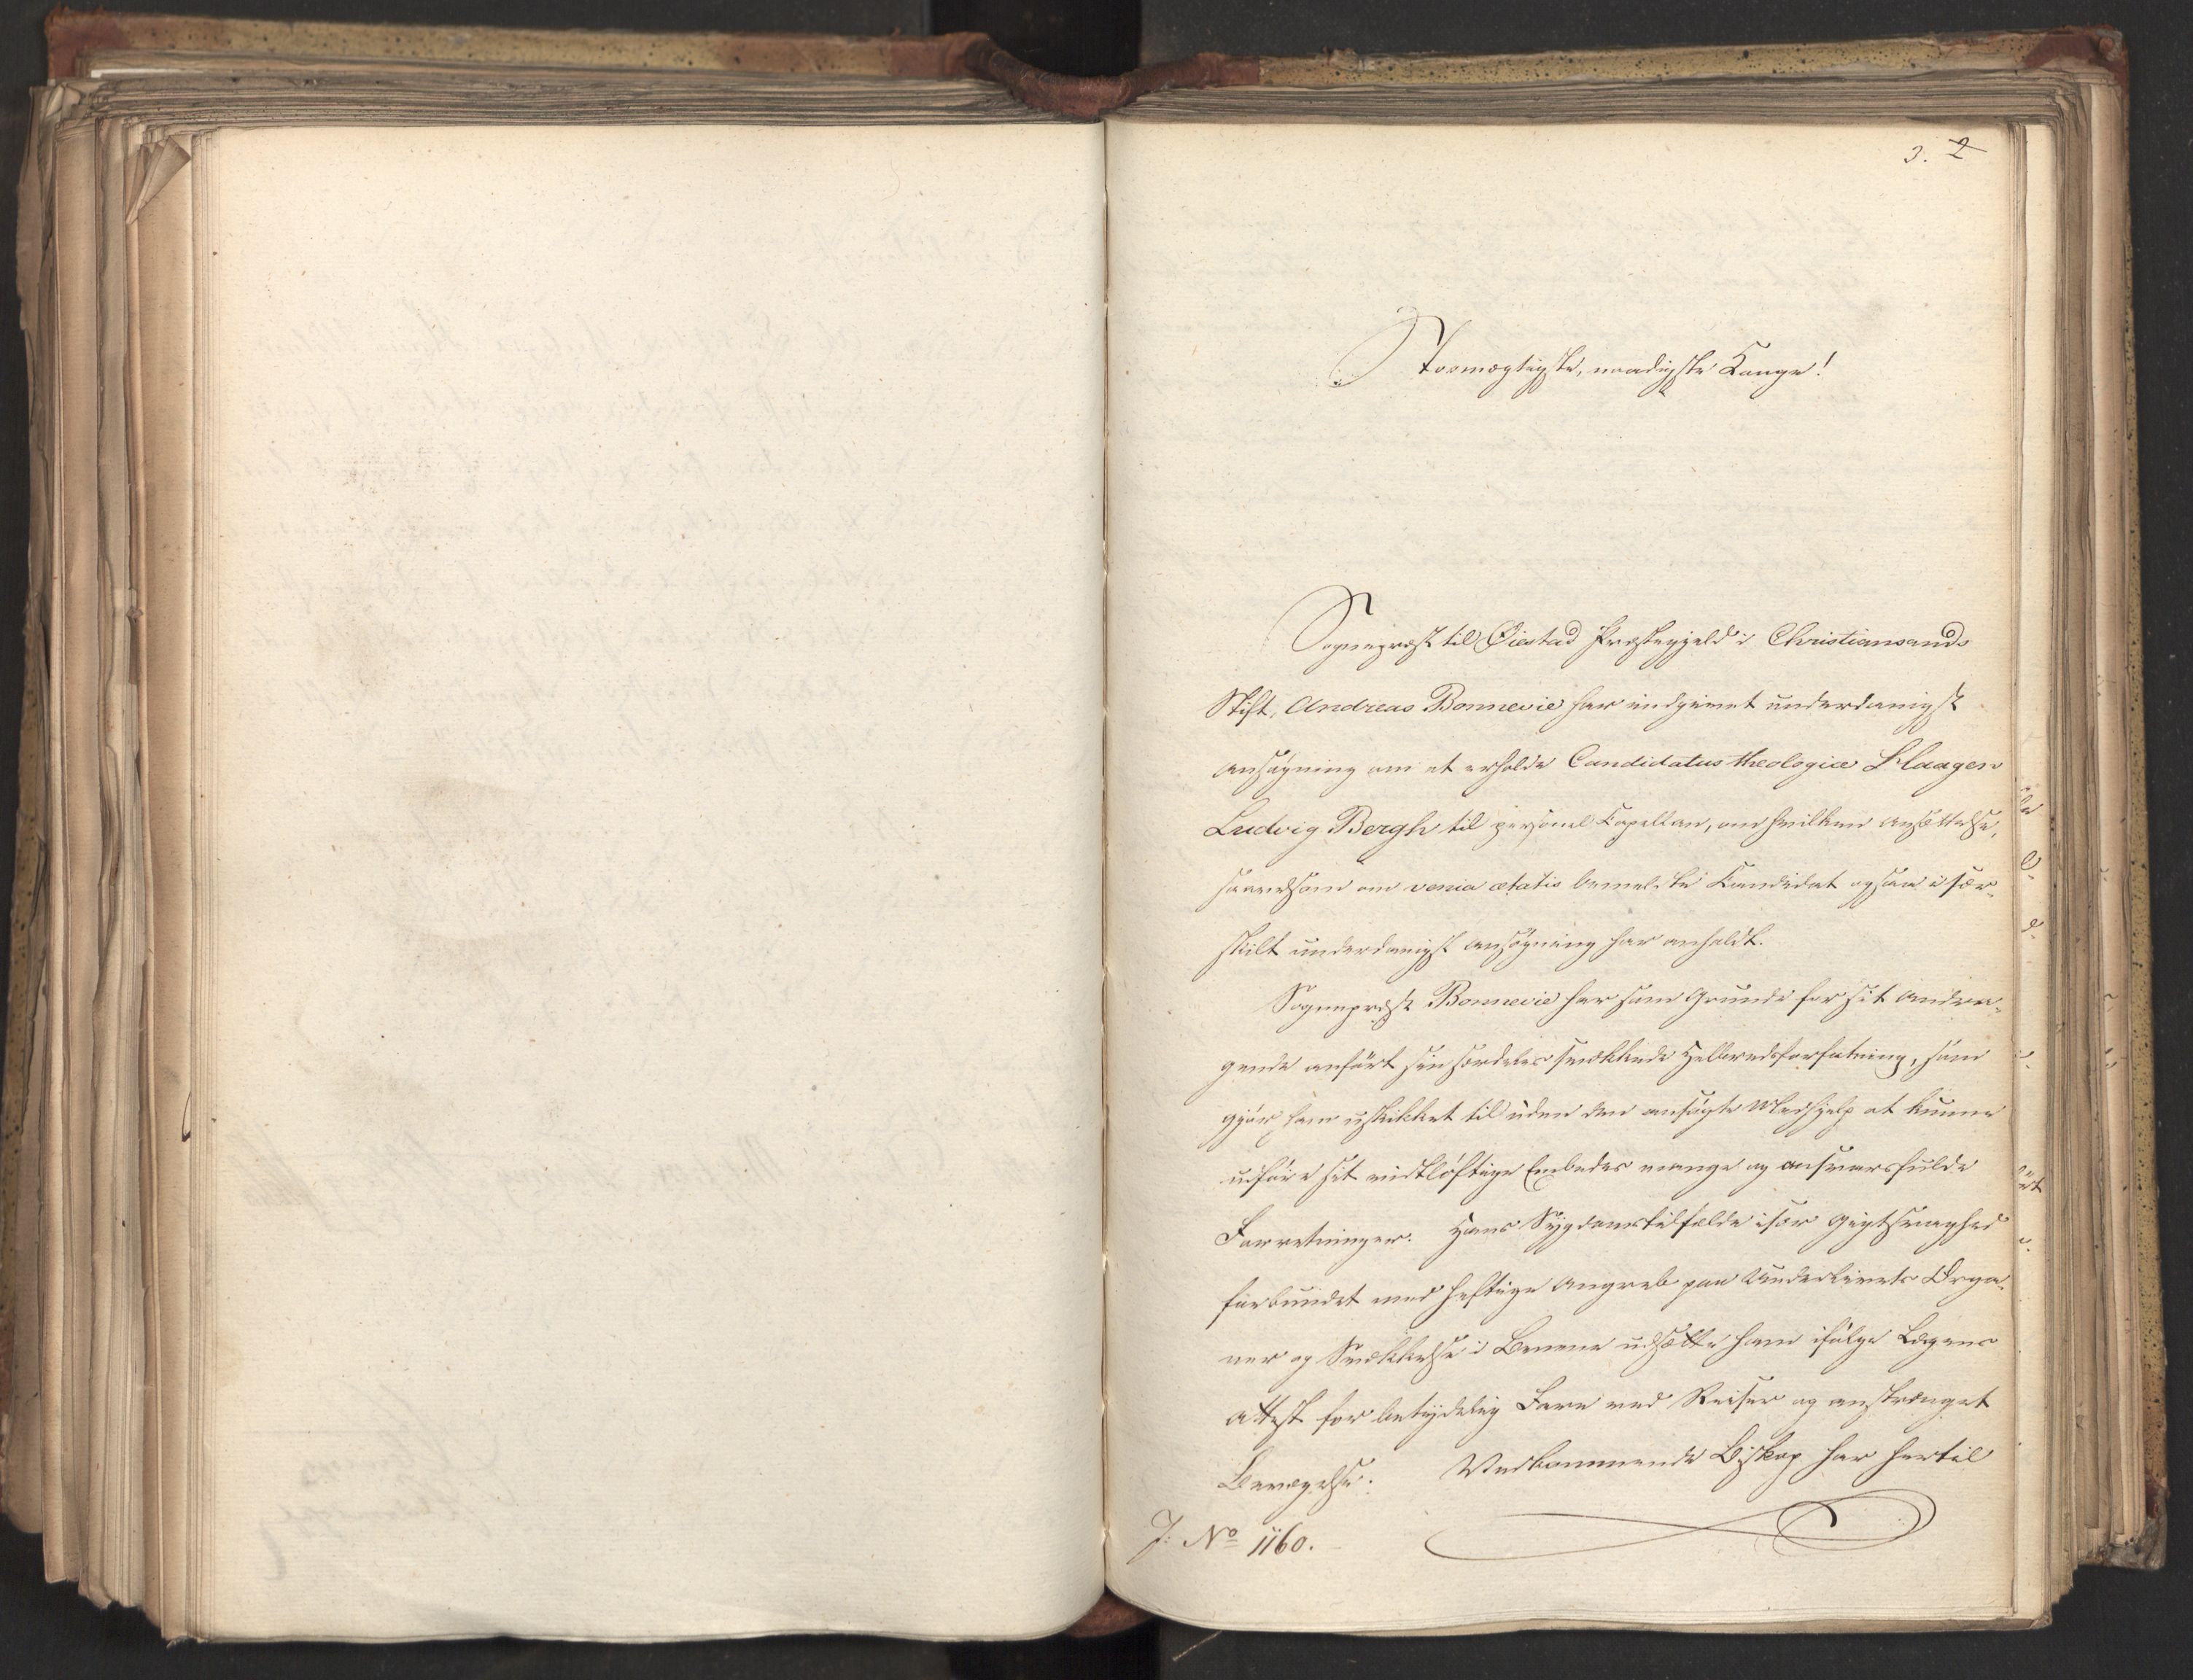 3. 2
Stormægtigste, naadigste Konge!
Sognepræst til Øiestad Præstegjeld i Christiansands
Stift, Andreas Bonnevie har indgivet underdanigst
Ansøgning om at erholde Candidatus theologiæ Haagen
Ludvig Bergh til personel Capellan, om hvilken Ansættelse,
saavelsom om venia ætatis bemeldte Candidat ogsaa i sær-
skilt underdanigst Ansøgning har anholdt.
Sognepræst Bonnevie har som Grunde for sit Andra-
gende anført sin særdeles svækkede Helbredsforfatning, som
gjør ham uskikket til uden den ansøgte Medhjelp at kunne
udføre sit vidtløftige Embedes mange og ansvarsfulde
Forretninger. Hans Sygdomstilfælde især Gigtsvaghed
forbundet med heftige Angreb paa Underlivets Orga-
ner og Svækkelse i Benene udsætte ham ifølge Lægens
Attest for betydelig Fare ved Reiser og anstrænget
Bevægelse. Vedkommende Biskop har hertil
J: No 1160.